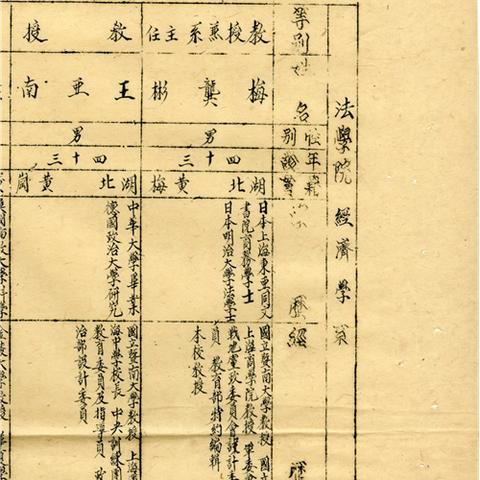 法學院 經濟學系
等別
姓名
性別
年齡
經
教授兼系主任
梅龔彬
男
四十三
湖北黃梅
日本上海東亞同文
書院商務學士
日本明治大學法學士
國立暨南大學教授 國立
上海商學院教授 軍委會
戰地黨政委員會設計委
員 教育部特約編輯
本校教授
教授
王亞南
男
四十三
湖北黃岡
中華大學畢業
德國政治大學研究
國立暨南大學教授 上海
海中學校長 中央訓練團
教育委員及指導員 政
治部設計委員